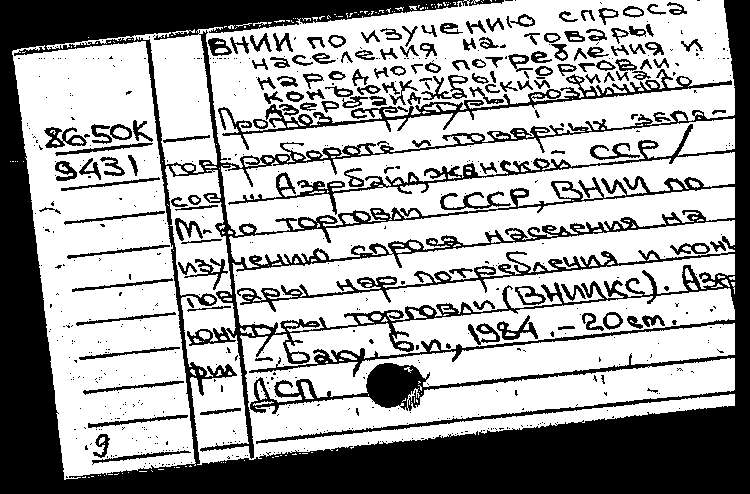 ВНИИ по изучению спроса
населения на товары
народного потребления и
конъюнктуры торговли.
Азербайджанский филиал.
Прогноз структуры розничного
86-50К
товарооборота и товарных запа-
9431
сов ... Азербайджанской ССР /
М-во торговли СССР, ВНИИ по
изучению спроса населения на
товары нар. потребления и конъ
юнктуры торговли (ВНИИКС). Азер
фил. - Баку: Б.и., 1984. - 20 см.
ДСП.
9